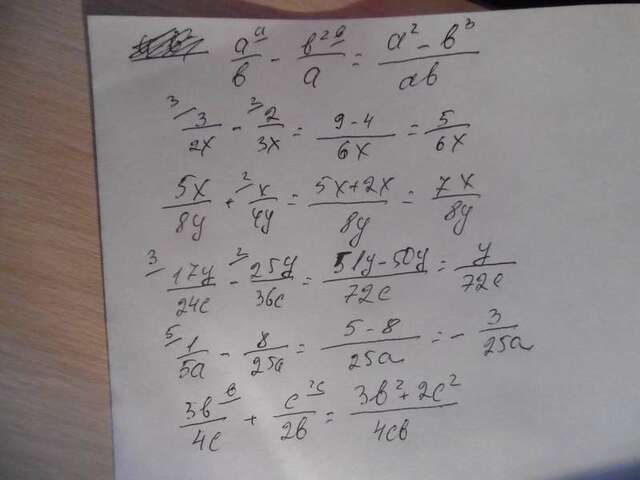 a ᵃ/в - в² ᵃ/a = a² - в³/aв
³⁄ 3/2x - ²⁄ 2/3x = 9 - 4/6x = 5/6x
5x/8y + ²⁄ x/4y = 5x + 2x/8y = 7x/8y
³⁄ 17y/24c - ²⁄ 25y/36c = 51y - 50y/72c = y/72c
⁵⁄ 1/5a - 8/25a = 5 - 8/25a = - 3/25a
3в ᵇ/4c + c ²ᶜ/2в = 3в² + 2c²/4cв